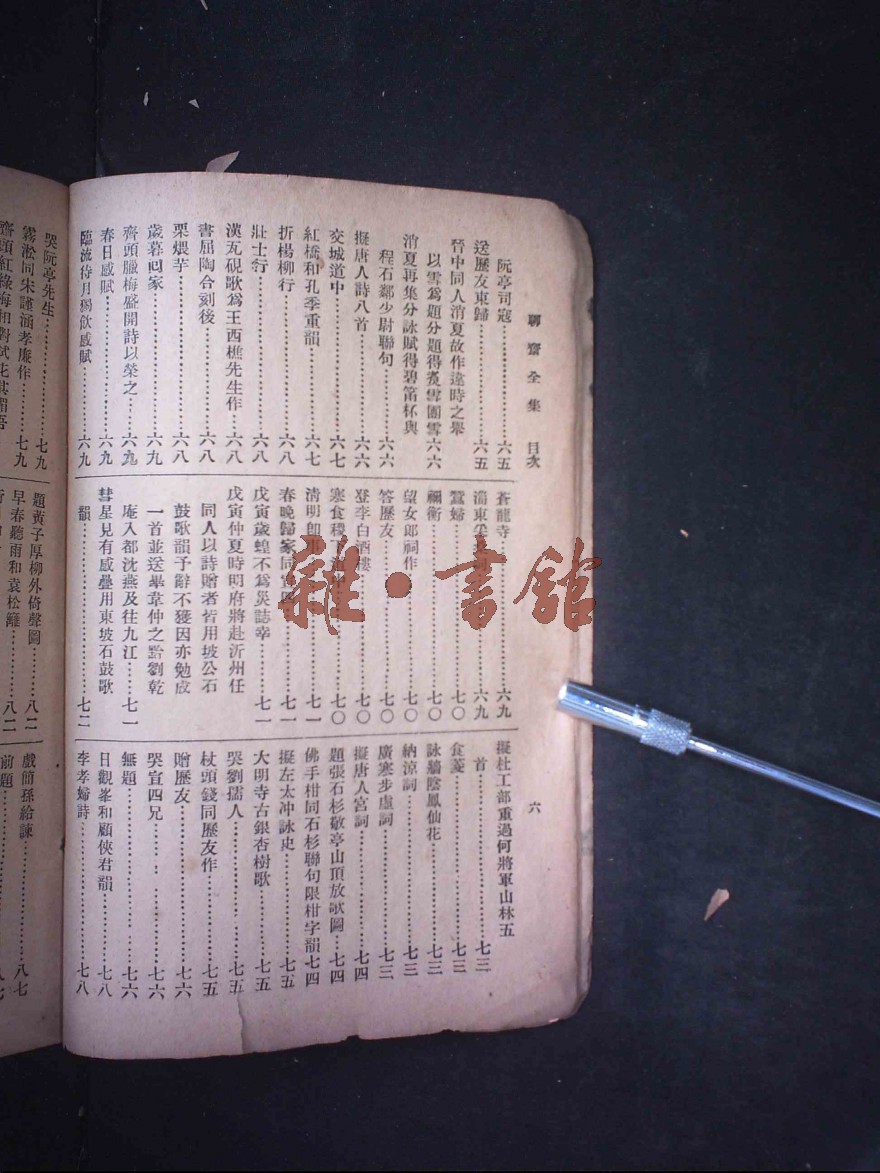 聊齋全集　目次
六
阮亭司寇……六五
送歷友東歸……六五
晉中同人消夏故作違時之舉
以雪爲題分題得賓雪團雪六六
消夏再集分詠賦得碧筩杯與
程石鄰少尉聯句……六六
擬唐人詩八首……六六
交城道中……六七
紅橋和孔季重韻……六七
折楊柳行……六八
壯士行……六八
漢瓦硯歌爲王西樵先生作…六八
書屈陶合刻後……六八
栗煨芋……六八
歲暮囘家……六九
齊頭臘梅盛開詩以榮之…六九
春日感賦……六九
臨流待月獨飲感賦……六九
蒼龍寺……六九
淄東……六九
蠶婦……七〇
禰衡……七〇
望女郎祠作……七〇
答歷友……七〇
登李白酒樓……七〇
寒食……七〇
清明……七一
春晚歸家同……七一
戊寅歲蝗不爲災誌幸……七一
戊寅仲夏時明府將赴沂州任
同人以詩贈者皆用坡公石
鼓歌韻予辭不獲因亦勉成
一首並送畢韋仲之黔劉乾
庵入都沈燕及往九江…七一
彗星見有感疊用東坡石鼓歌
韻……七二
擬杜工部重過何將軍山林五
首……七三
食菱……七三
詠牆陰鳳仙花……七三
納涼詞……七三
廣寒步虛詞……七三
擬唐人宮詞……七四
題張石杉敬亭山頂放歌圖…七四
佛手柑同石杉聯句限柑字韻七四
擬左太冲詠史……七五
大明寺古銀杏樹歌……七五
哭劉孺人……七五
杖頭錢同歷友作……七五
贈歷友……七六
哭宣四兄……七六
無題……七六
日觀峯和顧俠君韻……七八
李孝婦詩……七八
哭阮亭先生……七九
霧淞同朱謹涵孝廉作…七九
齋頭紅綠梅相對
題黃子厚柳外倚聲圖……八二
早春聽雨和袁松籬……八二
戲簡孫給諫……八七
前題
雜·書館